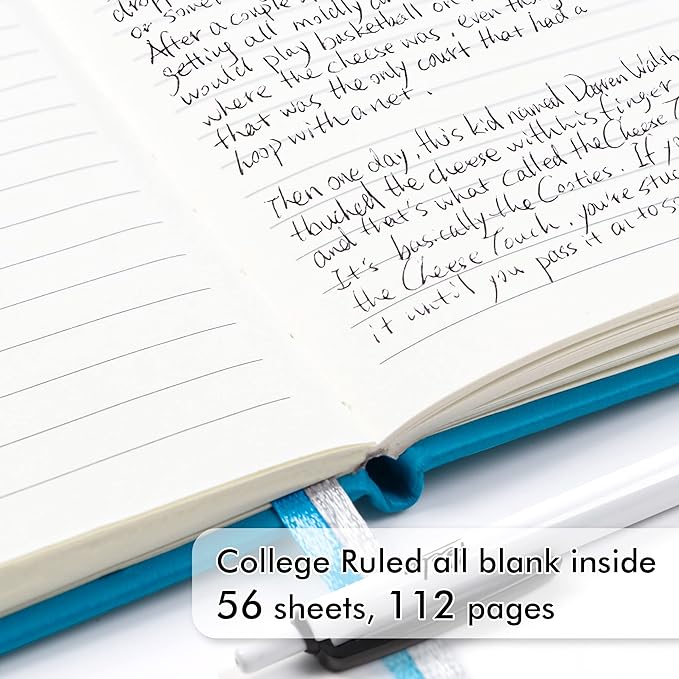 or some
After a couple
getting all moldly
would play basketball on
where the cheese was, even tho
that was the only court that had a
hoop with a net.
Then one day, this kid named Darren Walsh
touched the cheese with his finger
and that's what called the Cheese T
It's basically the Cooties. If y
the Cheese Touch, you're stuc
it until you pass it on to so
College Ruled all blank inside
56 sheets, 112 pages